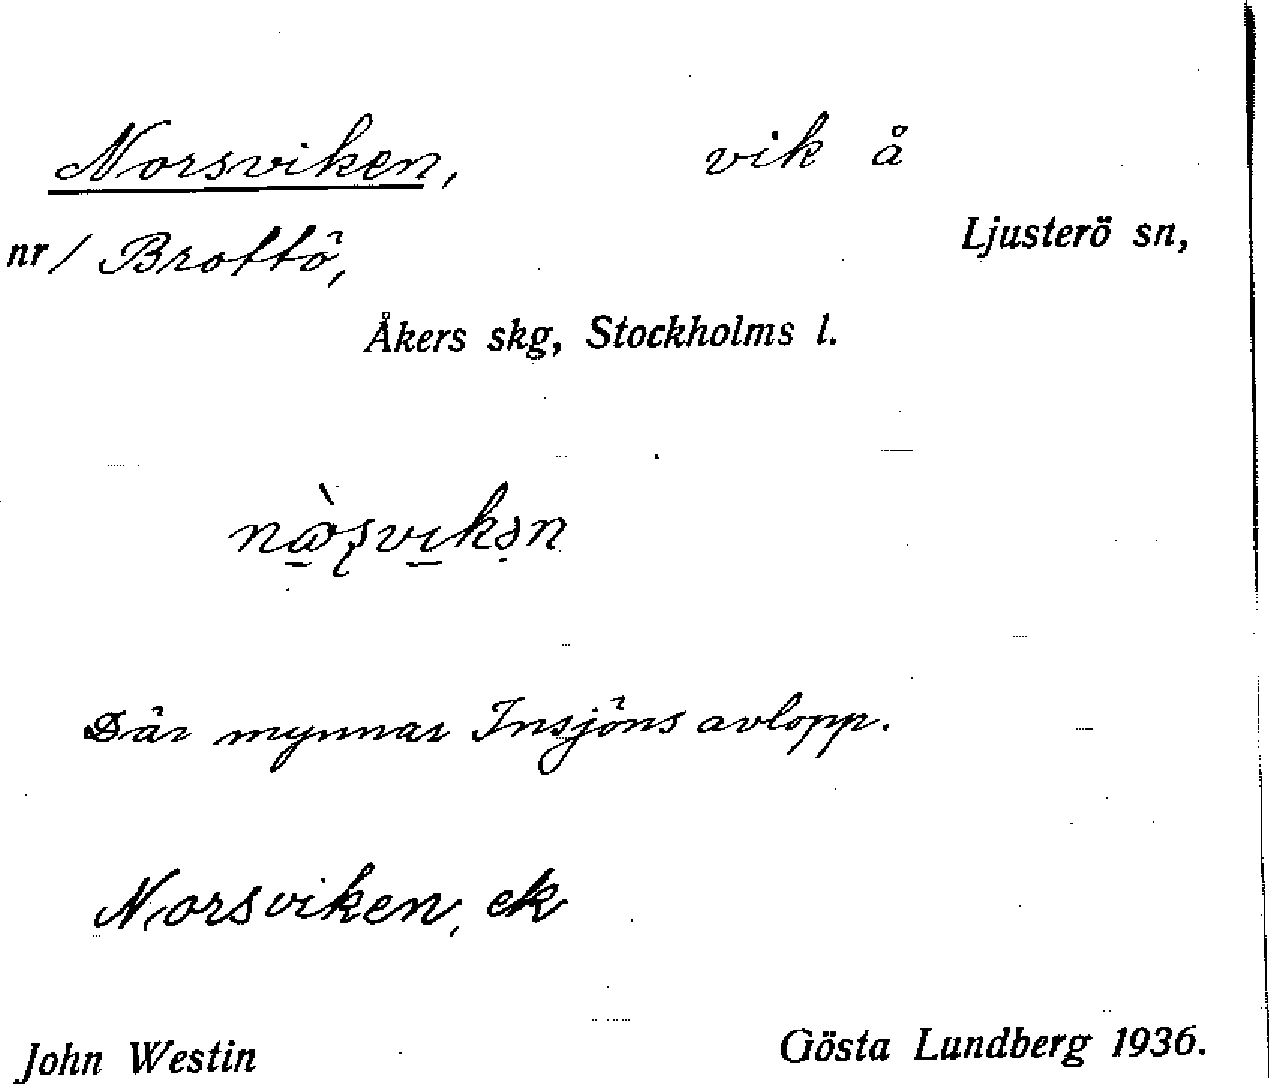 Norsviken, vik å
nr/ Brottö, Ljusterö sn,
Åkers skg, Stockholms l.
Där mynnar Insjöns avlopp.
Norsviken, ek
John Westin Gösta Lundberg 1936.